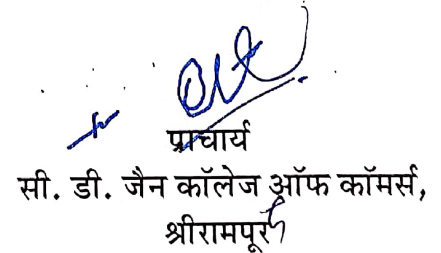 प्राचार्य
सी. डी. जैन कॉलेज ऑफ कॉमर्स,
श्रीरामपूर